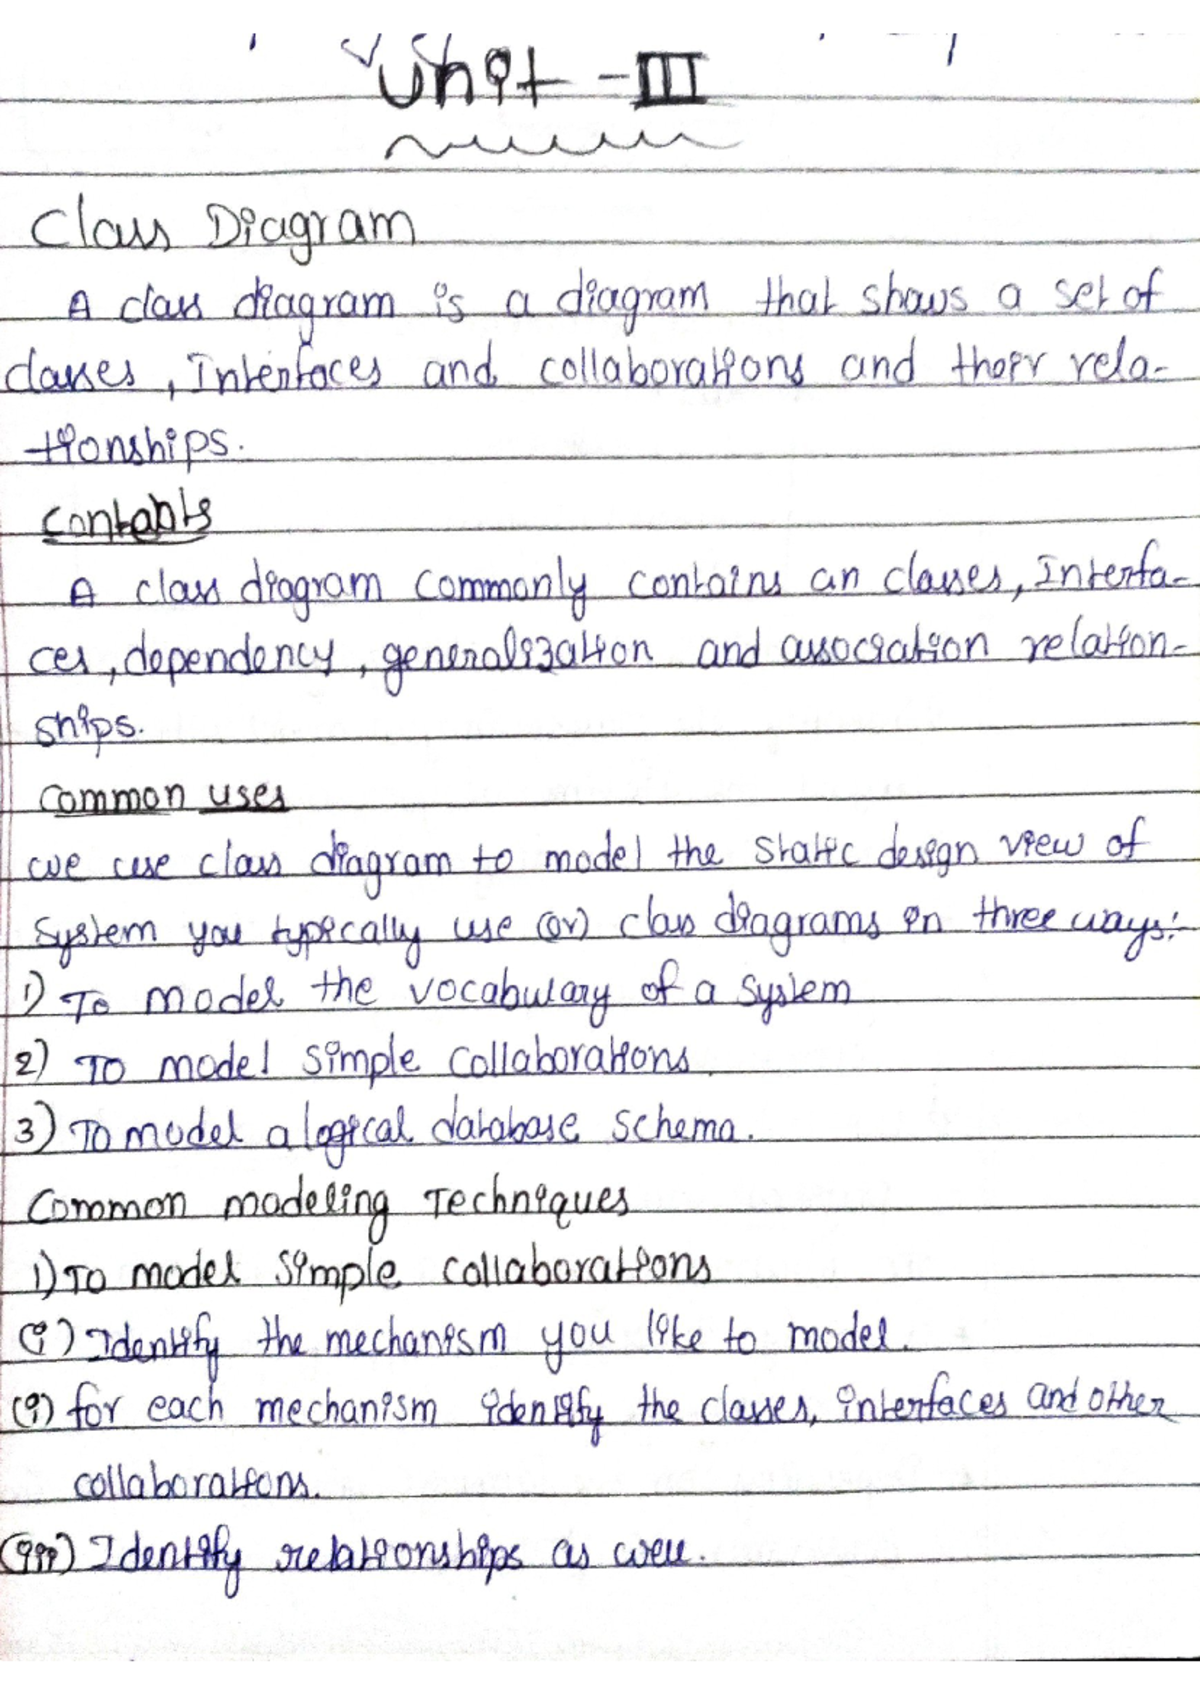 Unit - III
Class Diagram
A class diagram is a diagram that shows a set of
classes, Interfaces and collaborations and their rela-
tionships.
Contents
A class diagram commonly contains an classes, Interfa-
ces, dependency, generalization and association relation-
ships.
Common uses
we use class diagram to model the static design view of
system you typically use (or) class diagrams in three ways:-
1) To model the vocabulary of a system
2) To model simple collaborations.
3) To model a logical database schema.
Common modeling Techniques
1) To model simple collaborations
(i) Identify the mechanism you like to model.
(i) for each mechanism identify the classes, interfaces and other
collaborations.
(iii) Identify relationships as well.